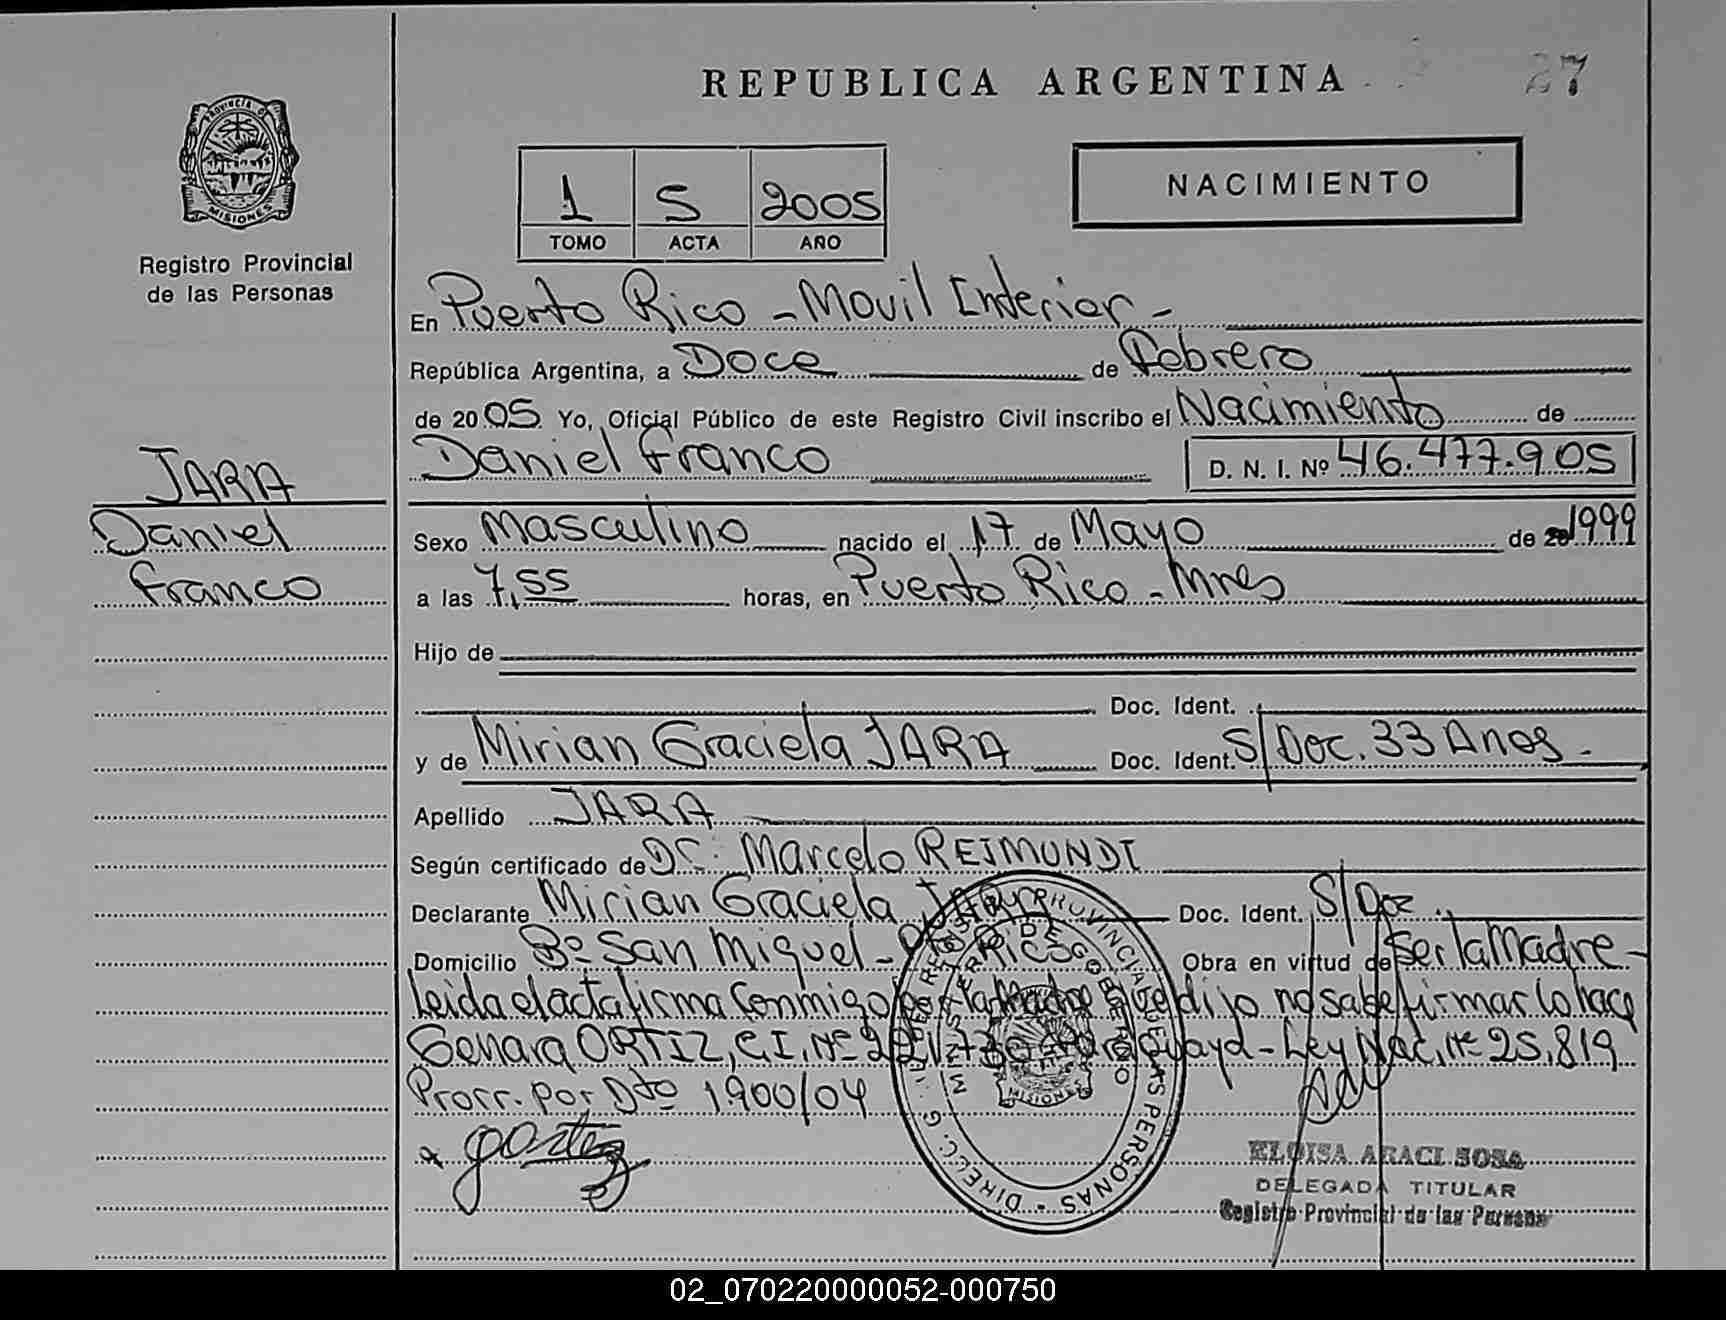 REPUBLICA ARGENTINA
27
PROVINCIA DE
MISIONES
Registro Provincial
de las Personas
1 5 2005
TOMO ACTA AÑO
NACIMIENTO
En Puerto Rico - Movil Interior -
República Argentina, a Doce de Febrero
de 2005 Yo, Oficial Público de este Registro Civil inscribo el Nacimiento de
Daniel Franco D. N. I. Nº 46.477.905
JARA
Daniel
Franco
Sexo Masculino nacido el 17 de Mayo de 20 1999
a las 7,55 horas, en Puerto Rico - Mnes
Hijo de
Doc. Ident.
y de Mirian Graciela JARA Doc. Ident. S/Doc. 33 Anos -
Apellido JARA
Según certificado de Dr. Marcelo REIMUNDI
Declarante Mirian Graciela Jara Doc. Ident. S/Doc.
Domicilio Bº San Miguel - Pto Rico Obra en virtud de Ser la Madre -
Leida el acta firma Conmigo la Madre que dijo no sabe firmar lo hace
Genara ORTIZ, C.I. Nº Paraguaya - Ley Nac. Nº 25.819
Prorr. por Dto 1.900/04
gortiz
DIRECC. G. DEL REGISTRO PROVINCIAL DE LAS PERSONAS
MINISTERIO DE GOBIERNO
MISIONES
ELOISA ARACI SOSA
DELEGADA TITULAR
Registro Provincial de las Personas
02_070220000052-000750